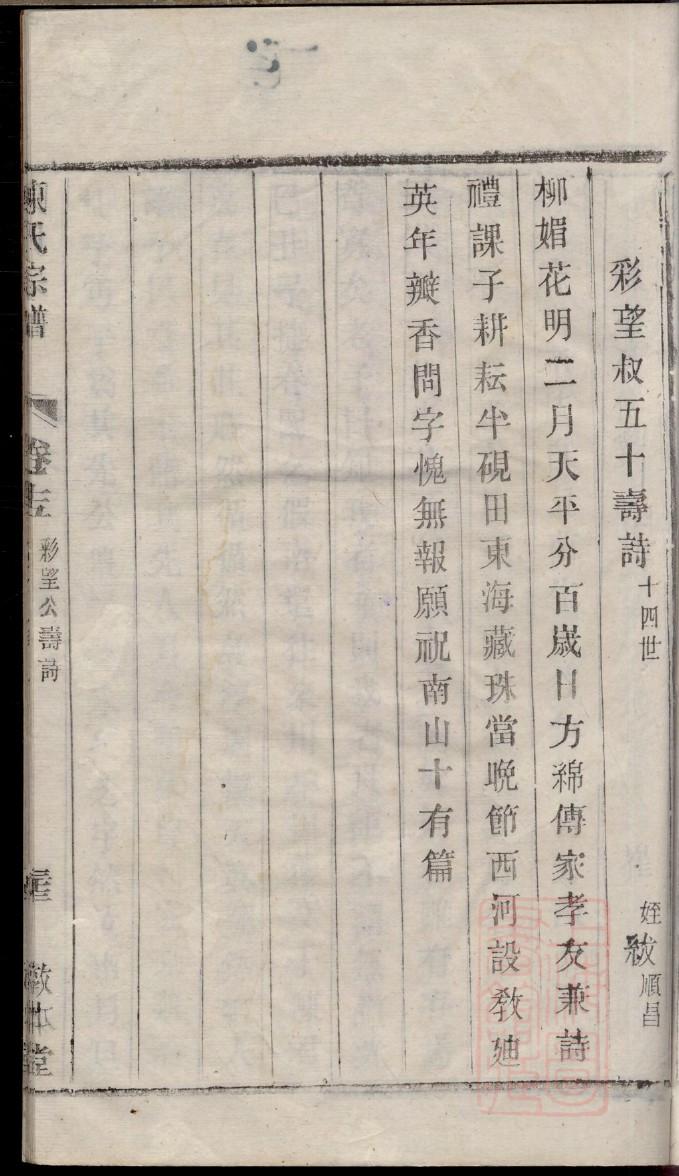 彩望叔五十壽詩 十四世 姪 紱順昌
柳媚花明二月天平分百歲日方綿傳家孝友兼詩
禮課子耕耘半硯田東海藏珠當晚節西河設教廸
英年瓣香問字愧無報願祝南山十有篇
陳氏宗譜 卷 彩望公壽詩 敦本堂